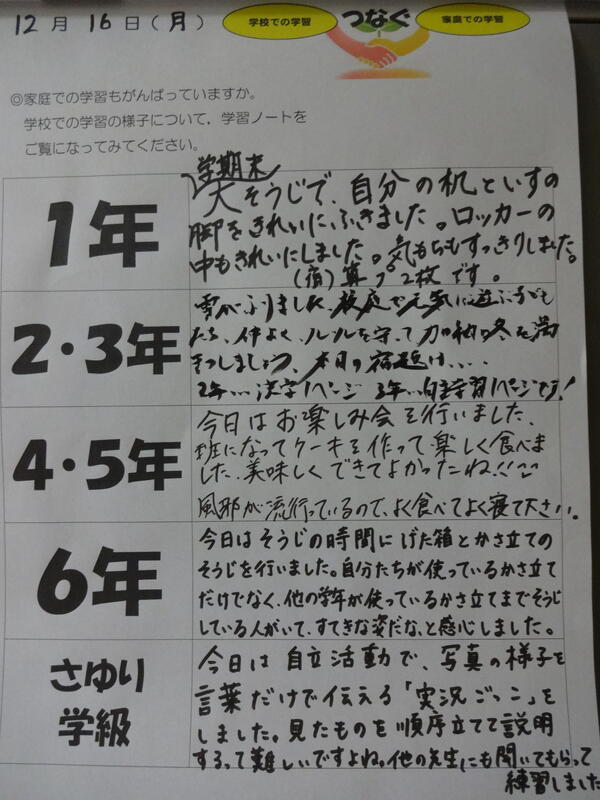 12月16日(月)
学校での学習 つなぐ 家庭での学習
◎家庭での学習もがんばっていますか。
学校での学習の様子について，学習ノートを
ご覧になってみてください。
1年
学期末
大そうじで、自分の机といすの
脚をきれいにふきました。ロッカーの
中もきれいにしました。気もちもすっきりしました。
(宿)算プ2枚です。
2・3年
雪がふりました。校庭で元気に遊ぶ子ども
たち、仲よく、ルールを守って の冬を満
きつしましょう、本日の宿題は....
2年...漢字1ページ 3年...自主学習1ページです!
4・5年
今日はお楽しみ会を行いました、
班になってケーキを作って楽しく食べま
した、美味しくできてよかったね!!
風邪が流行っているので、よく食べてよく寝て下さい。
6年
今日はそうじの時間にげた箱とかさ立ての
そうじを行いました。自分たちが使っているかさ立て
だけでなく、他の学年が使っているかさ立てまでそうじ
している人がいて、すてきな姿だな、と感心しました。
さゆり
学級
今日は自立活動で、写真の様子を
言葉だけで伝える「実況ごっこ」を
しました。見たものを順序立てて説明
するって難しいですよね。他の先生にも聞いてもらって
練習しました